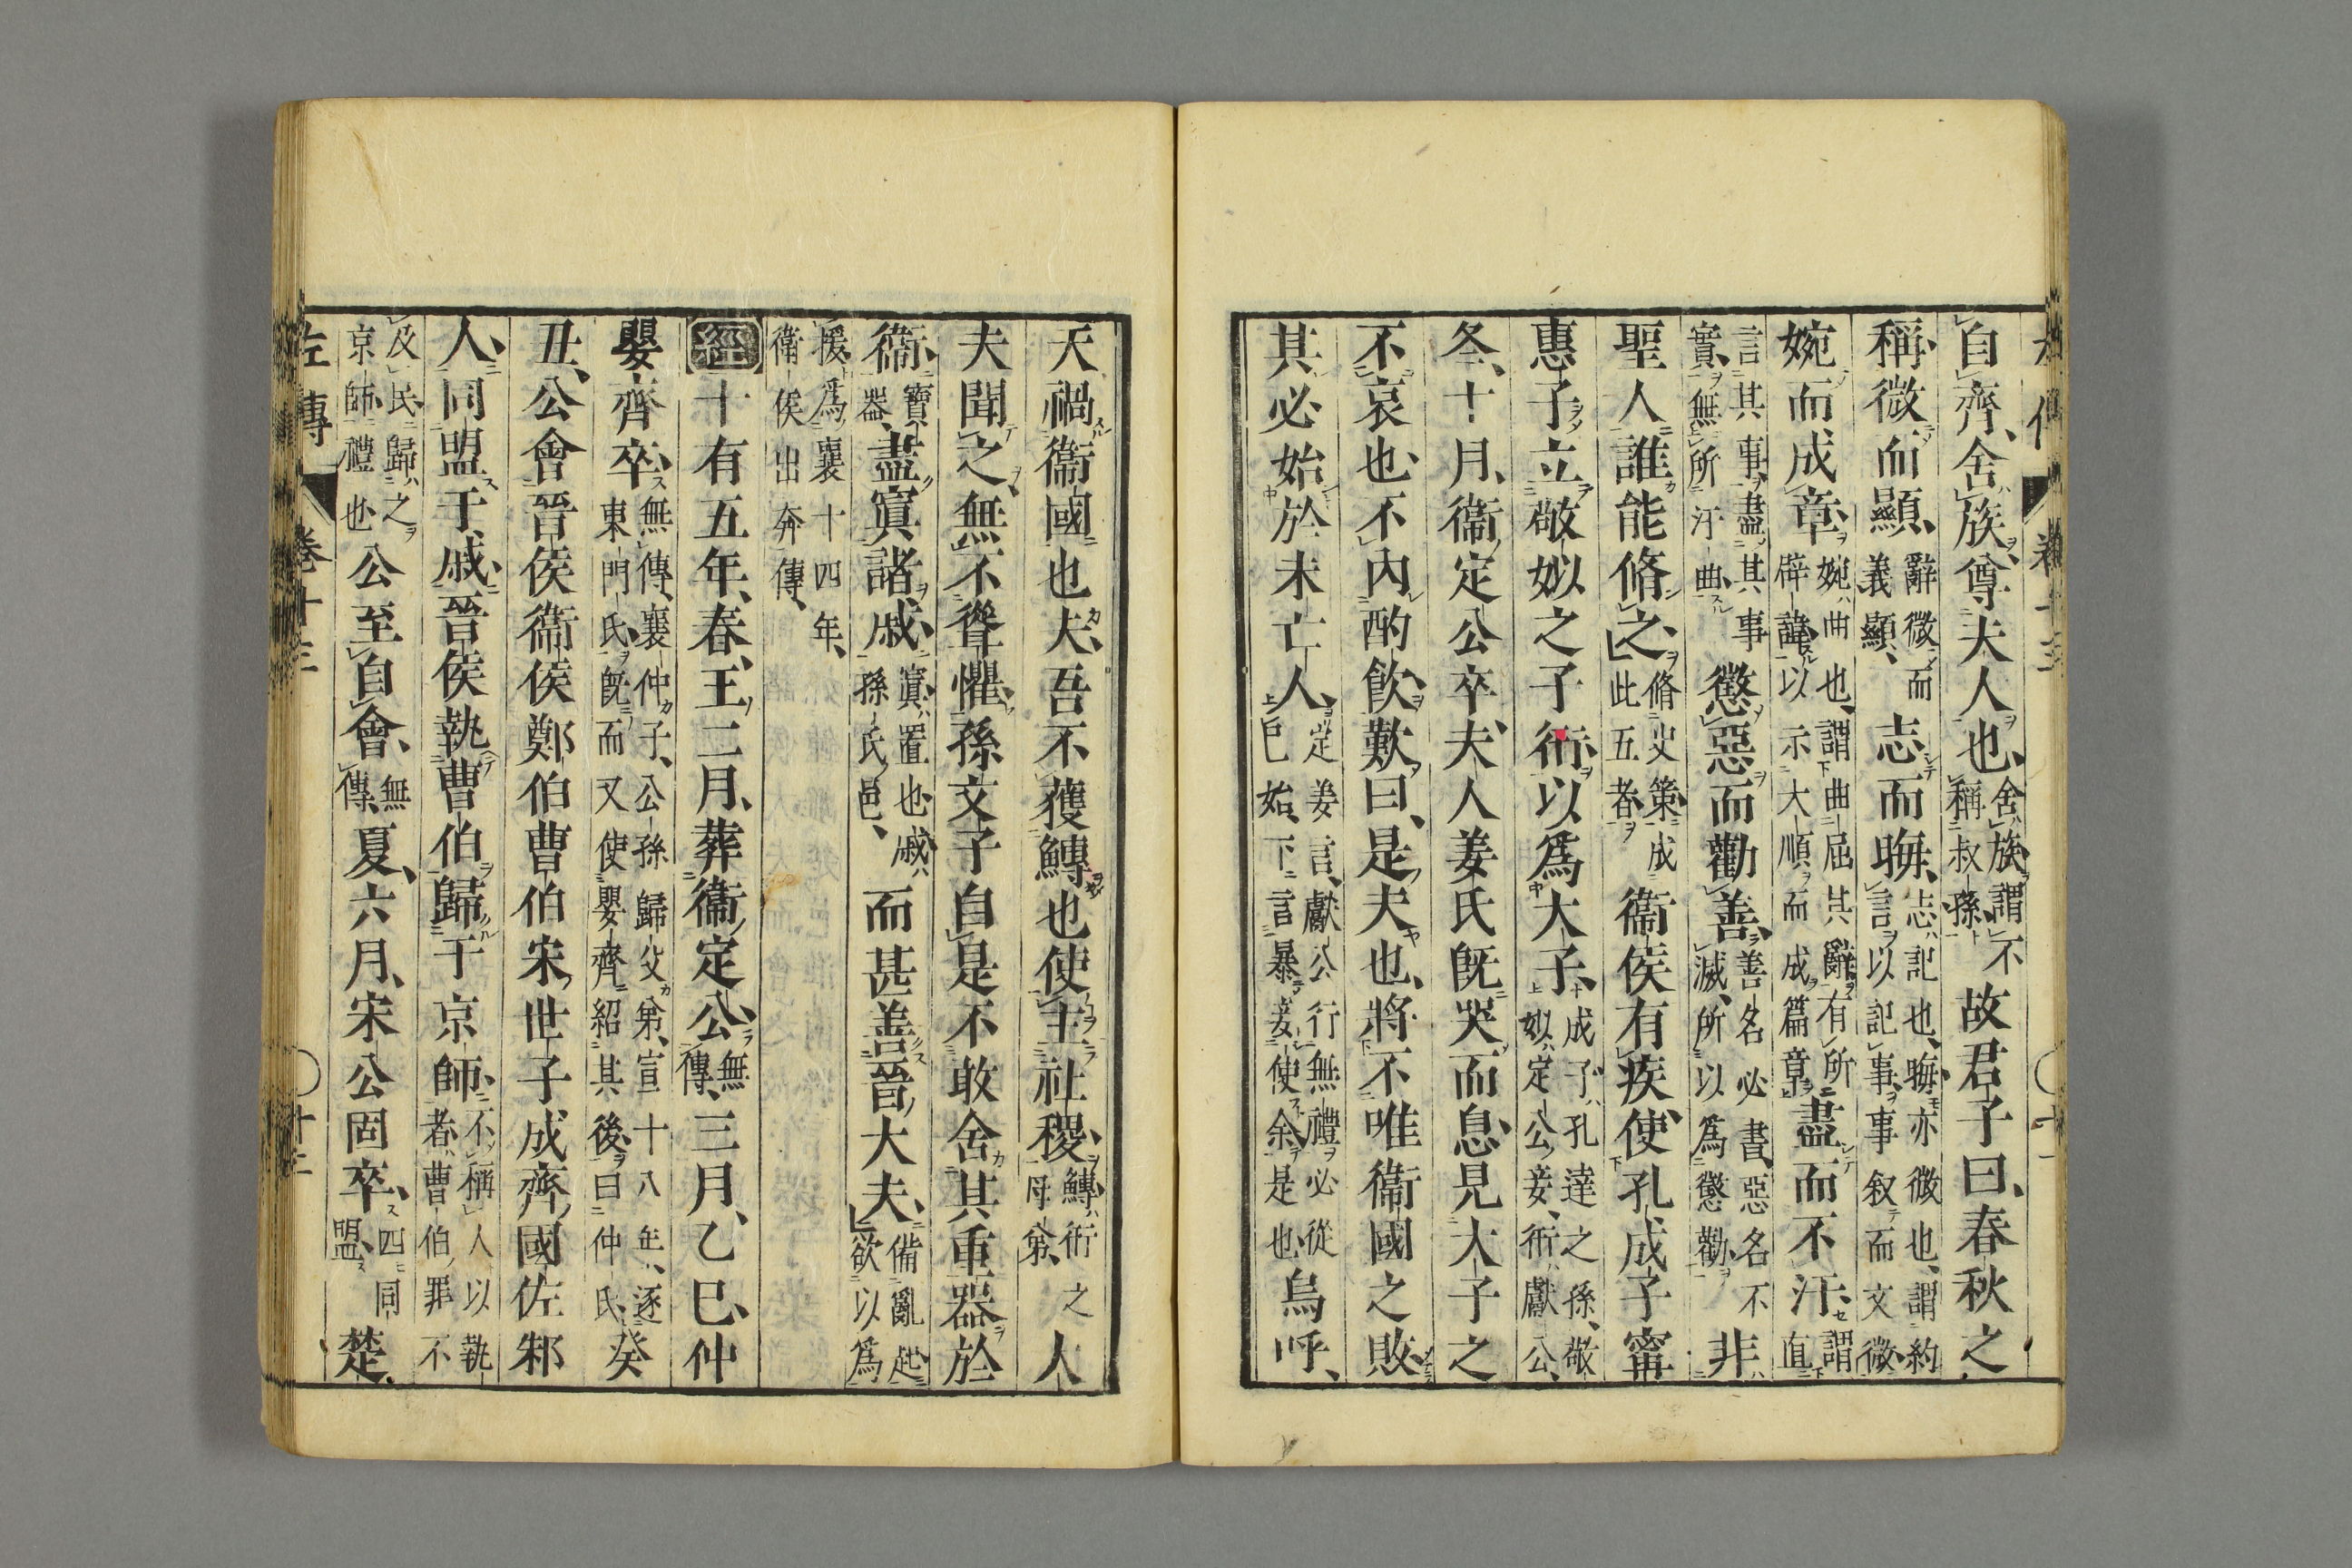 自齊舍族尊夫人也舍族謂不稱叔孫故君子曰春秋之
稱微而顯辭微而義顯志而晦志記也晦亦微也謂約言以記事事叙而文微
婉而成章婉曲也謂曲屈其辭有所辟諱以示大順而成篇章盡而不汙謂直
言其事盡其事實無所汙曲懲惡而勸善善名必書惡名不滅所以爲懲勸非
聖人誰能脩之脩史策成此五者衞侯有疾使孔成子甯
惠子立敬姒之子衎以爲大子成子孔達之孫敬姒定公妾衎獻公
冬十月衞定公卒夫人姜氏旣哭而息見大子之
不哀也不內酌飮歎曰是夫也將不唯衞國之敗
其必始於未亡人定姜言獻公行無禮必從己始下言暴妾使余是也烏呼
天禍衞國也夫吾不獲鱄也使主社稷鱄衎之母弟大
夫聞之無不聳懼孫文子自是不敢舍其重器於
衞寶器盡寘諸戚寘置也戚孫氏邑而甚善晉大夫備亂起欲以爲
援爲襄十四年衞侯出奔傳
經十有五年春王二月葬衞定公無傳三月乙巳仲
嬰齊卒無傳襄仲子公孫歸父弟宣十八年逐東門氏旣而又使嬰齊紹其後曰仲氏癸
丑公會晉侯衞侯鄭伯曹伯宋世子成齊國佐邾
人同盟于戚晉侯執曹伯歸于京師不稱人以執者曹伯罪不
及民歸之京師禮也公至自會無傳夏六月宋公固卒四同盟楚
左傳　卷十三　十二